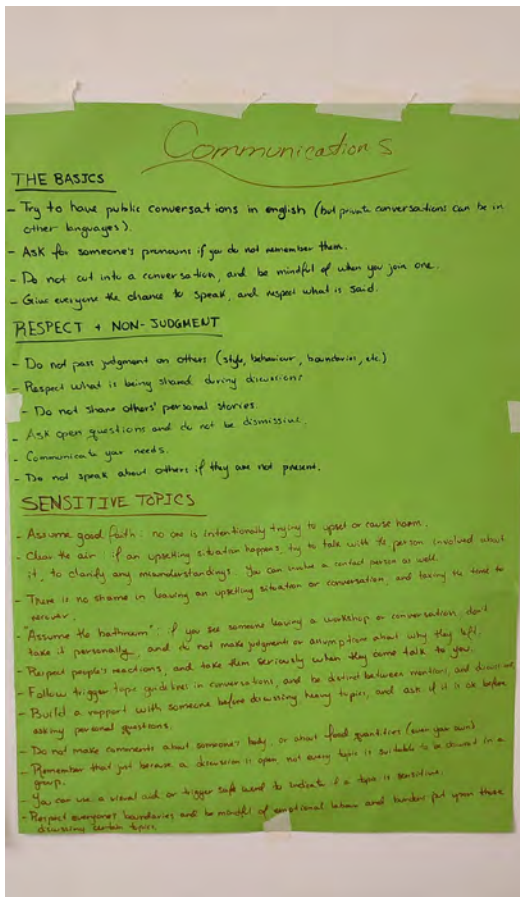 Communications
THE BASICS
- Try to have public conversations in english (but private conversations can be in
other languages).
- Ask for someone's pronouns if you do not remember them.
- Do not cut into a conversation, and be mindful of when you join one.
- Give everyone the chance to speak, and respect what is said.
RESPECT + NON-JUDGMENT
- Do not pass judgment on others (style, behaviour, boundaries, etc.)
- Respect what is being shared during discussions
- Do not share others' personal stories.
- Ask open questions and do not be dismissive.
- Communicate your needs.
- Do not speak about others if they are not present.
SENSITIVE TOPICS
- Assume good faith: no one is intentionally trying to upset or cause harm.
- Clear the air: if an upsetting situation happens, try to talk with the person involved about
it, to clarify any misunderstandings. You can involve a contact person as well.
- There is no shame in leaving an upsetting situation or conversation, and taking the time to
recover.
- "Assume the bathroom": if you see someone leaving a workshop or conversation, don't
take it personally, and do not make judgments or assumptions about why they left.
- Respect people's reactions, and take them seriously when they come talk to you.
- Follow trigger topic guidelines in conversations, and be distinct between mentions and discussions.
- Build a rapport with someone before discussing heavy topics, and ask if it is ok before
asking personal questions.
- Do not make comments about someone's body, or about food quantities (even your own)
- Remember that just because a discussion is open not every topic is suitable to be shared in a
group.
- You can use a visual aid or trigger safe word to indicate if a topic is sensitive.
- Respect everyone's boundaries and be mindful of emotional labour and burdens put upon those
discussing certain topics